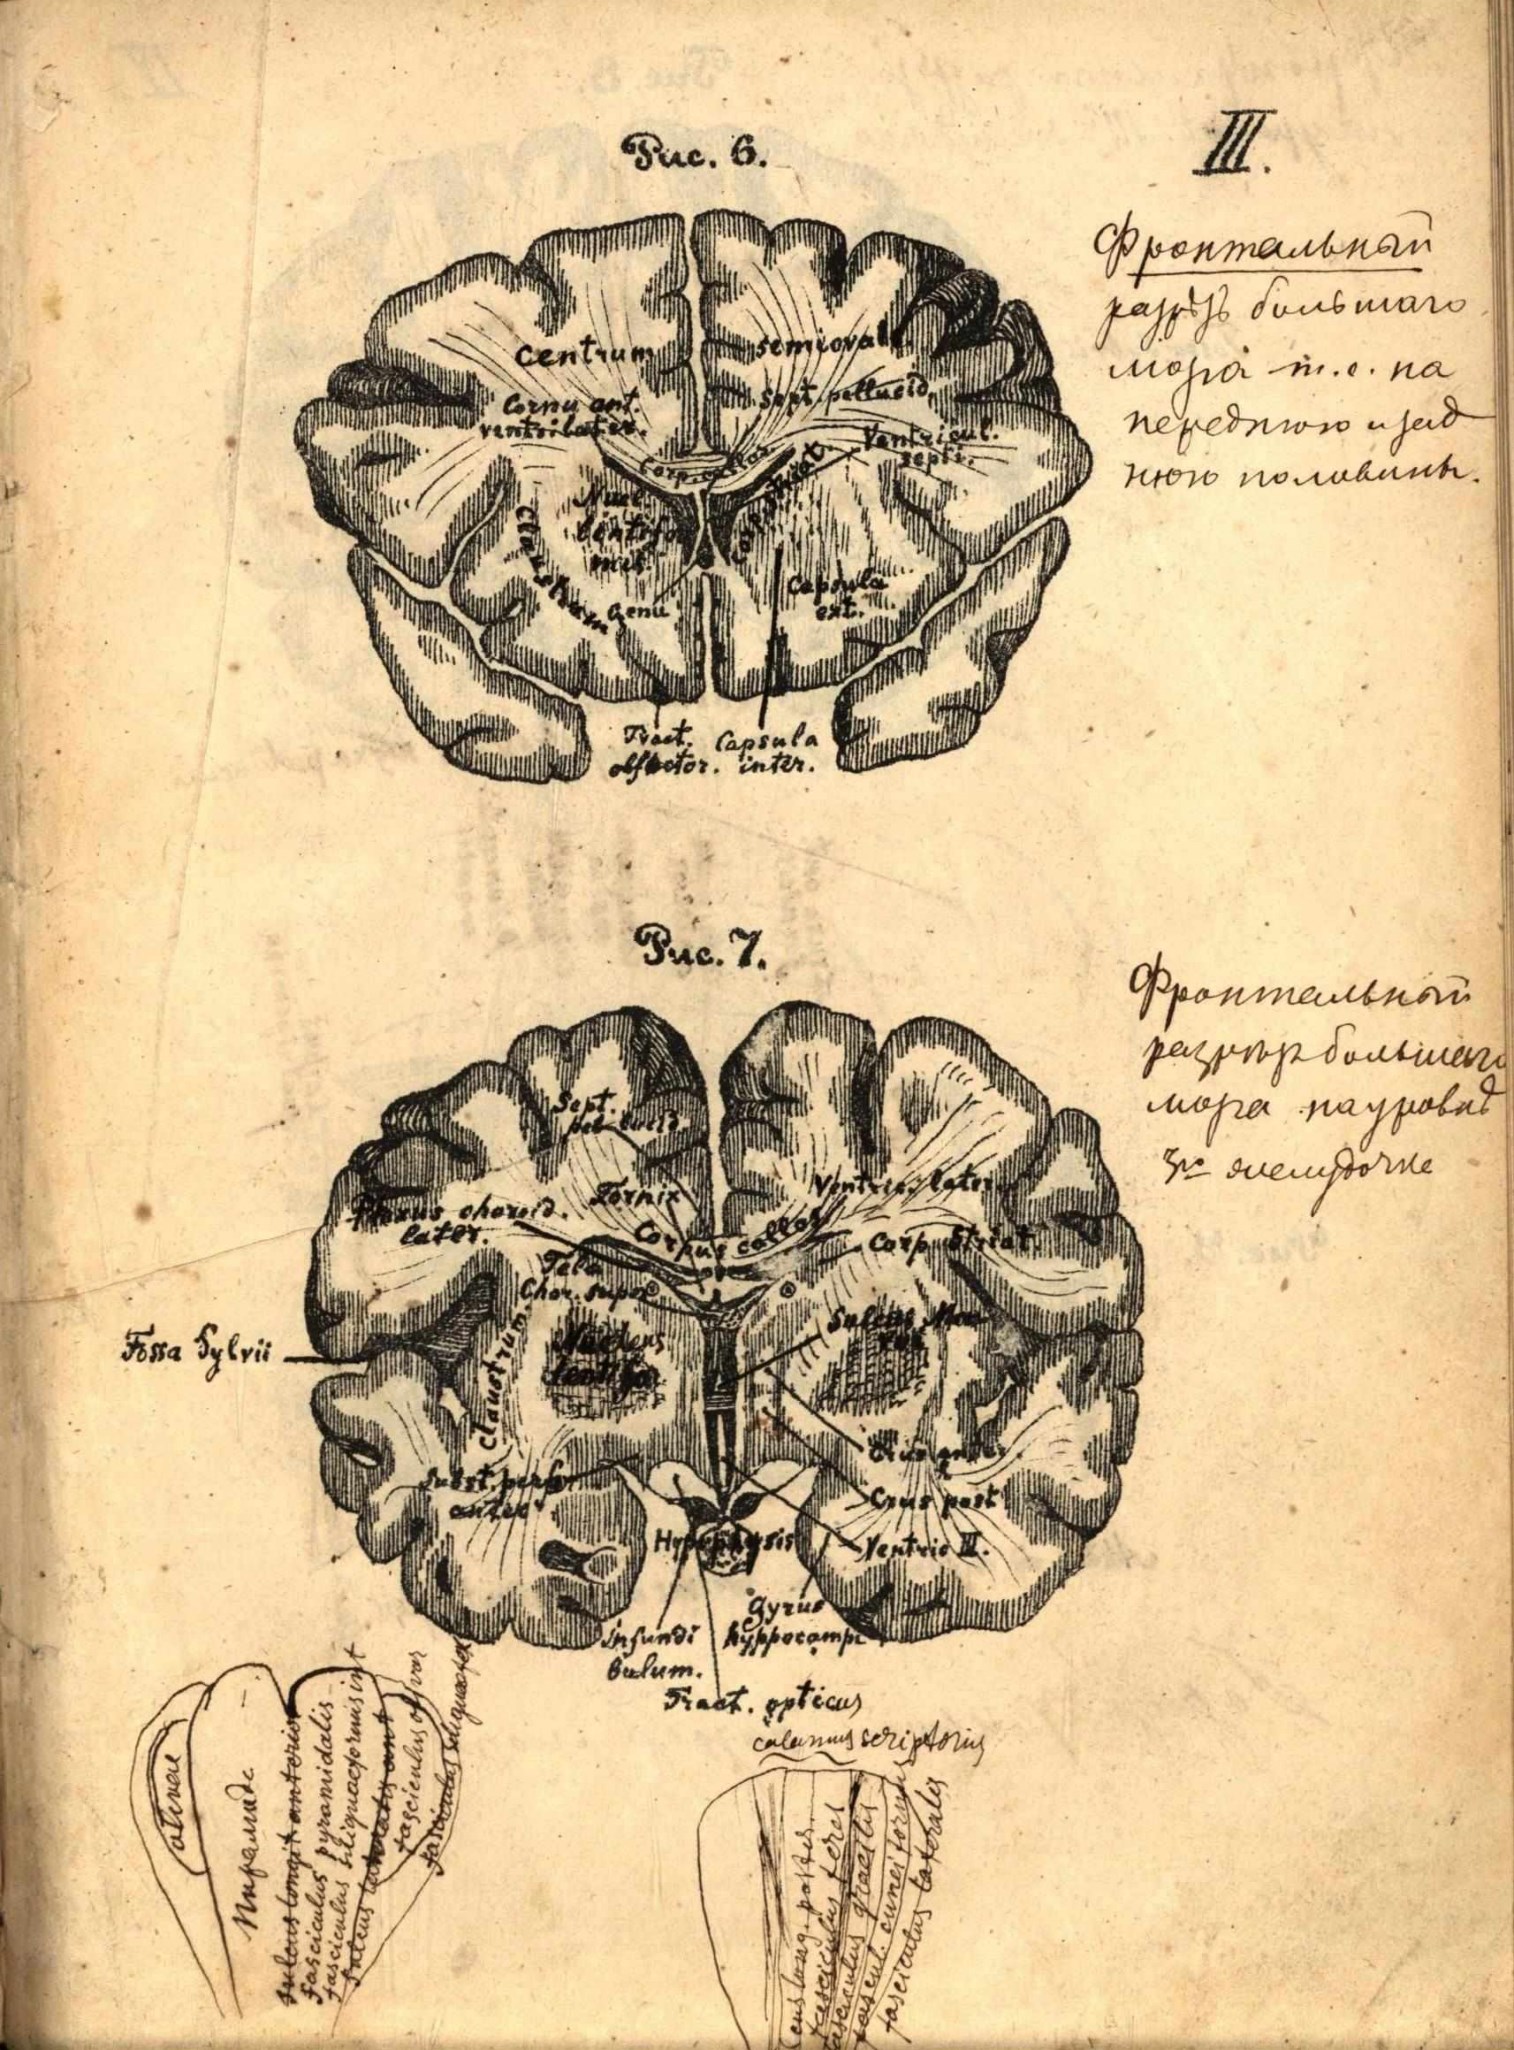 III.
Рис. 6.
Фронтальный
разрѣзъ большаго
мозга т.е. на
переднюю и зад
нюю половины.
centrum
semiovale
Sept. pellucid.
Cornu ant.
ventr. later.
Ventricul.
septi.
Corp. callos.
Corp. striat.
Nucl.
lentifor
mis.
Claustrum
Genu
Capsula
ext.
Tract.
olfactor.
Capsula
inter.
Рис. 7.
Фронтальный
разрѣзъ большаго
мозга на уровнѣ
3го желудочка
Sept.
pellucid.
Fornix
Ventric. later.
Plexus choroid.
later.
Corpus callos.
Corp. Striat.
Tela
Chor. super.
Sulcus Mon
roi
Nucleus
lentifor.
Fossa Sylvii
Claustrum
Crus ante.
Subst. perf.
anter.
Crus post
Hypophysis
Ventric III.
Gyrus
hyppocampi
Infundi
bulum.
Tract. opticus
calamus scriptorius
olivae
Пирамиде
sulcus longit anterior
fasciculus pyramidalis
fasciculus siliquaeformis int
sulcus lateralis ant
fasciculus
fasciculus
long. poster.
fasciculus teres
fasciculus gracilis
fascicul. cuneiformis
fasciculus lateralis